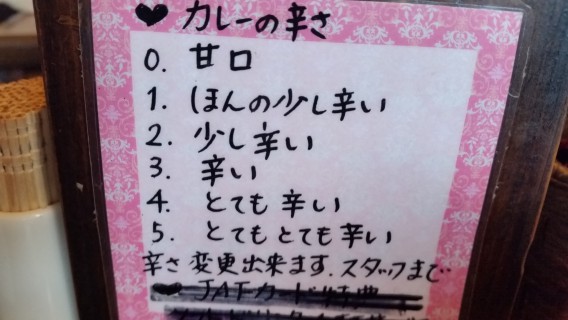 ♥ カレーの辛さ
0. 甘口
1. ほんの少し辛い
2. 少し辛い
3. 辛い
4. とても辛い
5. とてもとても辛い
辛さ変更出来ます.スタッフまで
♥ JAFカード特典